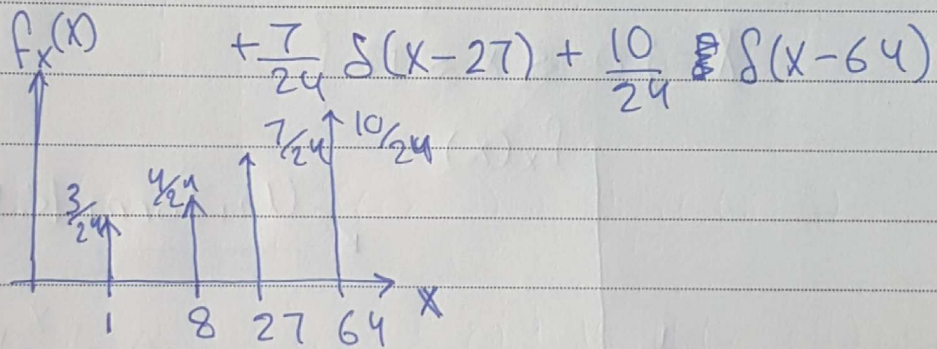 fx(x) + 7/24 δ(x-27) + 10/24 δ(x-64)
3/24 4/24 7/24 10/24
1 8 27 64 x